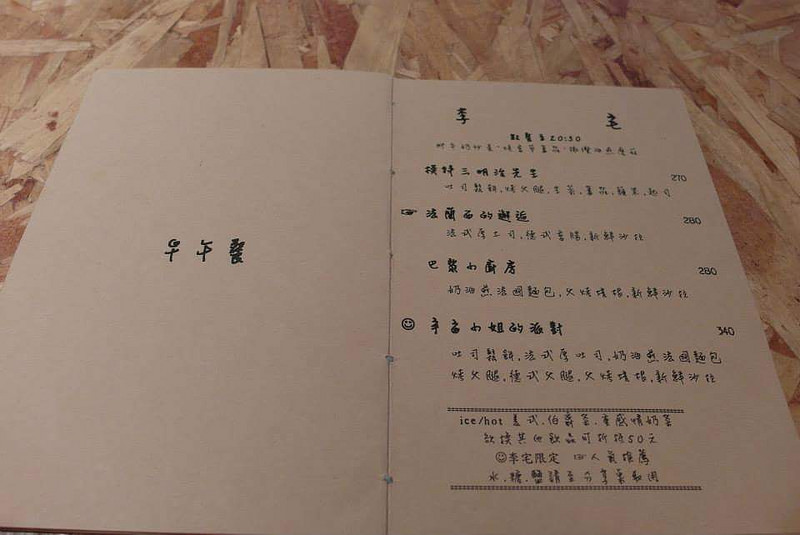 早午餐
李宅
點餐至20:30
模特三明治先生 270
吐司鬆餅.烤火腿.生菜.蕃茄.蘋果.起司
☞ 法蘭西的邂逅 280
法式厚土司.德式香腸.新鮮沙拉
巴黎小廚房 280
奶油煎法國麵包.火烤培根.新鮮沙拉
☺ 辛蒂小姐的派對 340
吐司鬆餅.法式厚吐司.奶油煎法國麵包
烤火腿.德式火腿.火烤培根.新鮮沙拉
ice/hot 美式.伯爵茶.重感情奶茶
飲換其他飲品可折抵50元
☺李宅限定 ☞人氣推薦
水.糖.鹽請至分享區取用